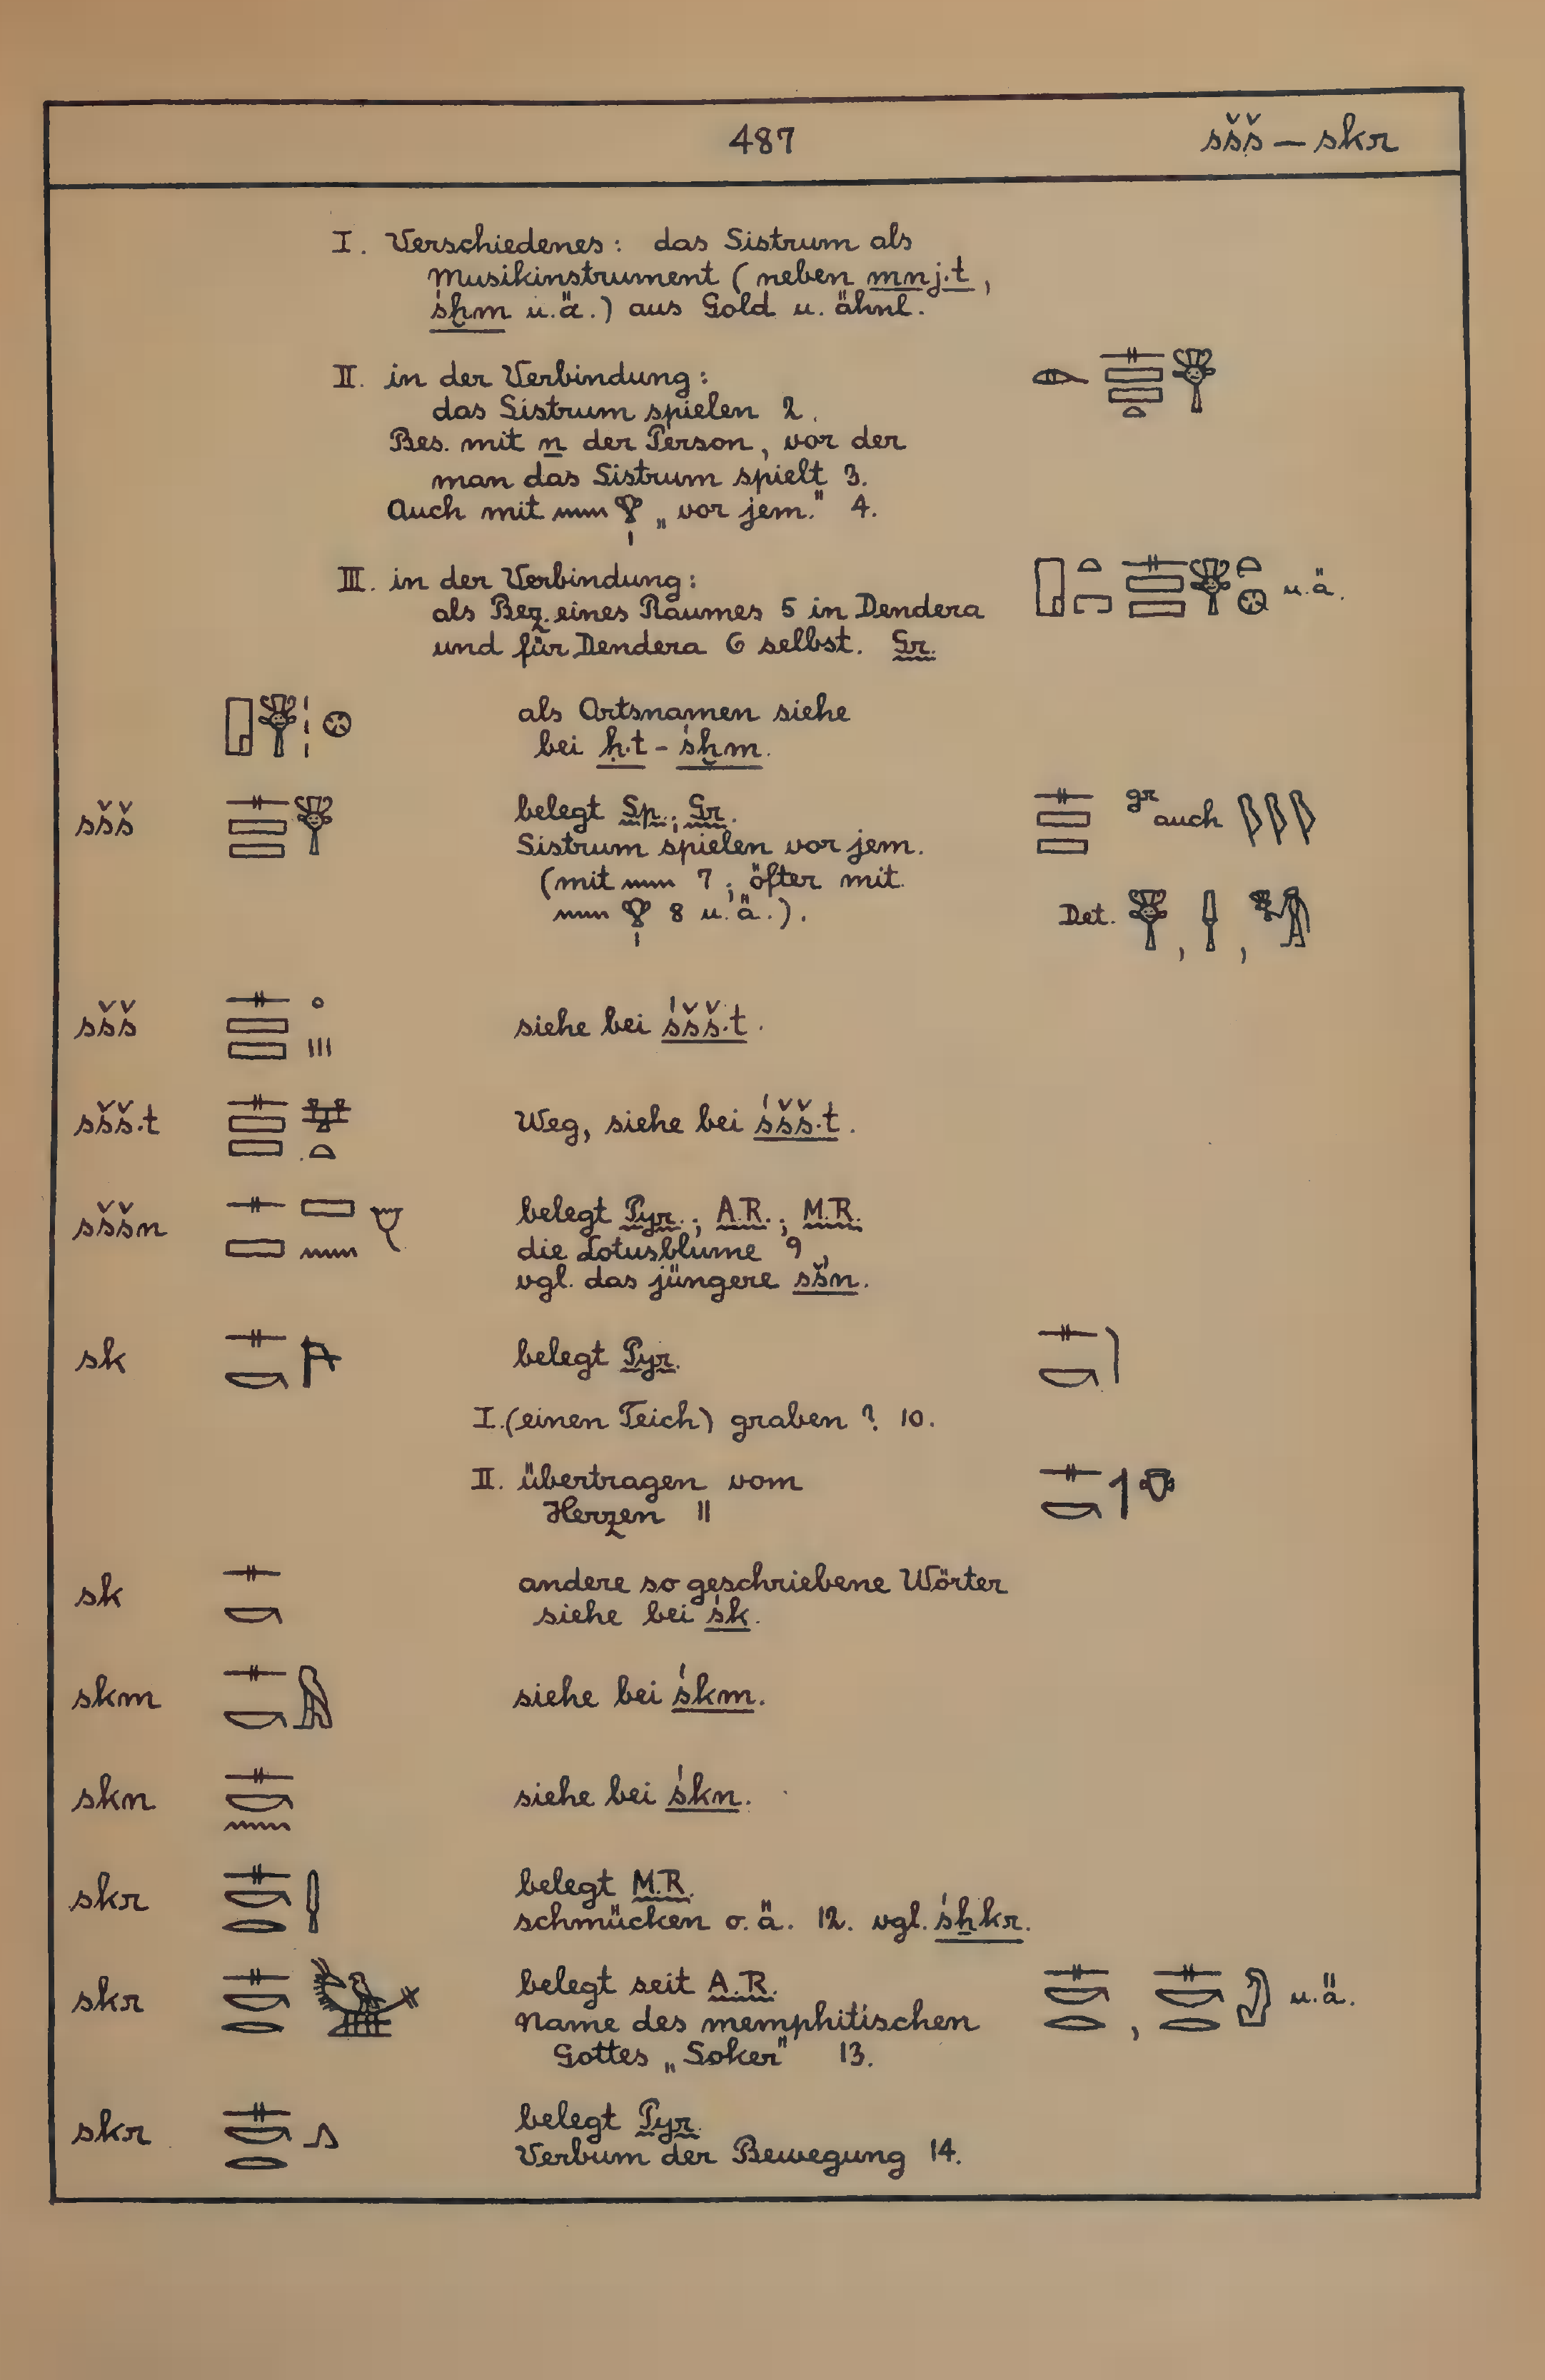 487
sšš — skr
I. Verschiedenes: das Sistrum als
Musikinstrument (neben mnj.t,
śḫm u.ä.) aus Gold u. ähnl.
II. in der Verbindung:
das Sistrum spielen 2.
Bes. mit n der Person, vor der
man das Sistrum spielt 3.
Auch mit 𓈖 𓁷𓏤 „vor jem." 4.
III. in der Verbindung:
u.ä.
als Bez. eines Raumes 5 in Dendera
und für Dendera 6 selbst. Gr.
als Ortsnamen siehe
bei ḥ.t-śḫm.
sšš 𓊃𓈙𓈙𓏣 belegt Sp.; Gr. 𓊃𓈙𓈙 gr auch
Sistrum spielen vor jem.
(mit 𓈖 7; öfter mit
𓈖 𓁷𓏤 8 u.ä.). Det.
sšš 𓊃𓈙𓈙 siehe bei śšš.t.
sšš.t 𓊃𓈙𓈙𓈐𓏏 Weg, siehe bei śšš.t.
sššn 𓊃𓈙𓈙𓈖 belegt Pyr.; A.R.; M.R.
die Lotusblume 9,
vgl. das jüngere sšn.
sk 𓊃𓎡 belegt Pyr. 𓊃𓎡
I. (einen Teich) graben? 10.
II. übertragen vom 𓊃𓎡
Herzen 11
sk 𓊃𓎡 andere so geschriebene Wörter
siehe bei śk.
skm 𓊃𓎡𓅓 siehe bei śkm.
skn 𓊃𓎡𓈖 siehe bei śkn.
skr 𓊃𓎡𓂋 belegt M.R.
schmücken o.ä. 12. vgl. śẖkr.
skr 𓊃𓎡𓂋 belegt seit A.R. 𓊃𓎡𓂋, 𓊃𓎡𓂋 u.ä.
Name des memphitischen
Gottes „Soker" 13.
skr 𓊃𓎡𓂋𓂻 belegt Pyr.
Verbum der Bewegung 14.